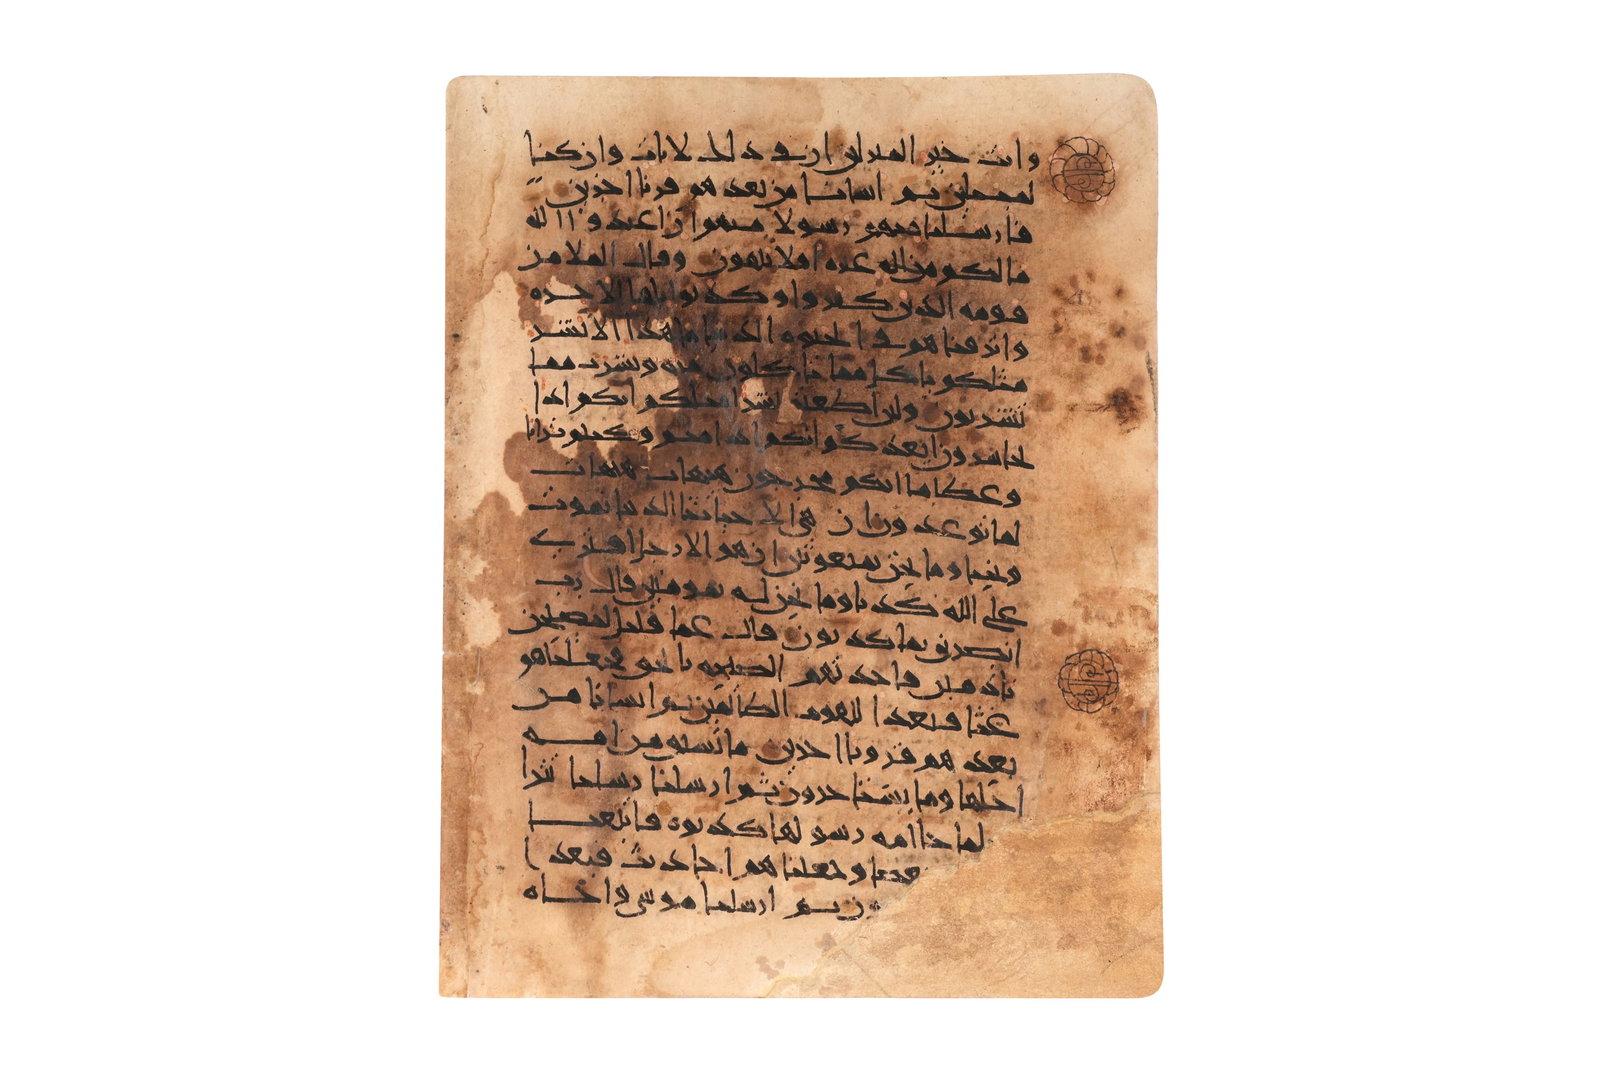 وانت خير المنزلين ان في ذلك لايات وان كنا
لمبتلين ثم انشانا من بعدهم قرنا اخرين
فارسلنا فيهم رسولا منهم ان اعبدوا الله
ما لكم من اله غيره افلا تتقون وقال الملا من
قومه الذين كفروا وكذبوا بلقا الاخرة
واترفناهم في الحيوة الدنيا ما هذا الا بشر
مثلكم ياكل مما تاكلون منه ويشرب مما
تشربون ولئن اطعتم بشرا مثلكم انكم اذا
لخاسرون ايعدكم انكم اذا متم وكنتم ترابا
وعظاما انكم مخرجون هيهات هيهات
لما توعدون ان هي الا حياتنا الدنيا نموت
ونحيا وما نحن بمبعوثين ان هو الا رجل افترى
على الله كذبا وما نحن له بمومنين قال رب
انصرني بما كذبون قال عما قليل ليصبحن
نادمين فاخذتهم الصيحة بالحق فجعلناهم
غثا فبعدا للقوم الظالمين ثم انشانا من
بعدهم قرونا اخرين ما تسبق من امة
اجلها وما يستاخرون ثم ارسلنا رسلنا تترا
لما جا امة رسولها كذبوه فاتبعنا
بعضا وجعلناهم احاديث فبعدا
ن ثم ارسلنا موسى واخاه